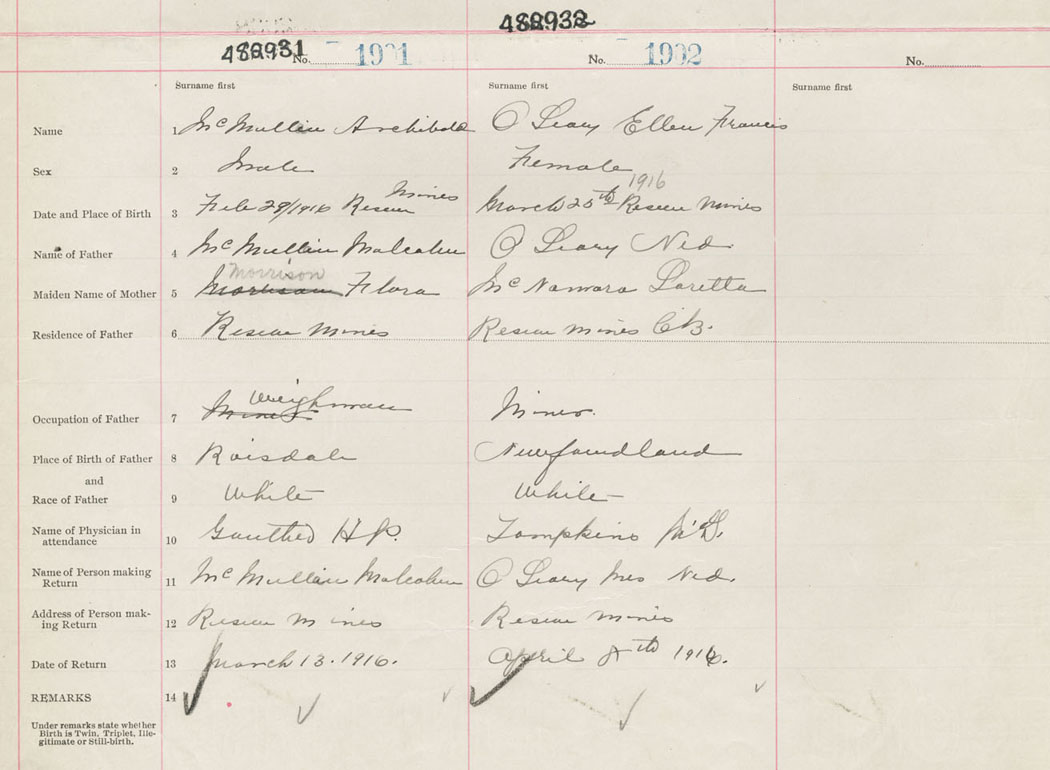 482932
482931 No. 1901 No. 1902 No.
Surname first Surname first Surname first
Name 1 McMullin Archibald O Leary Ellen Francis
Sex 2 Male Female
1916
Mines
Date and Place of Birth 3 Feb 29/1916 Reserve March 25th Reserve Mines
Name of Father 4 McMullin Malcolm O Leary Ned
Morrison
Maiden Name of Mother 5 Flora McNamara Loretta
Residence of Father 6 Reserve Mines Reserve Mines C.B.
Weighman
Occupation of Father 7 Miner Miner.
Place of Birth of Father 8 Boisdale Newfoundland
and
Race of Father 9 White White
Name of Physician in
attendance 10 H P. Tompkins M.D.
Name of Person making
Return 11 McMullin Malcolm O Leary Mrs Ned.
Address of Person mak-
ing Return 12 Reserve Mines Reserve Mines
Date of Return 13 March 13. 1916. April 8th 1916.
REMARKS 14
Under remarks state whether
Birth is Twin, Triplet, Ille-
gitimate or Still-birth.